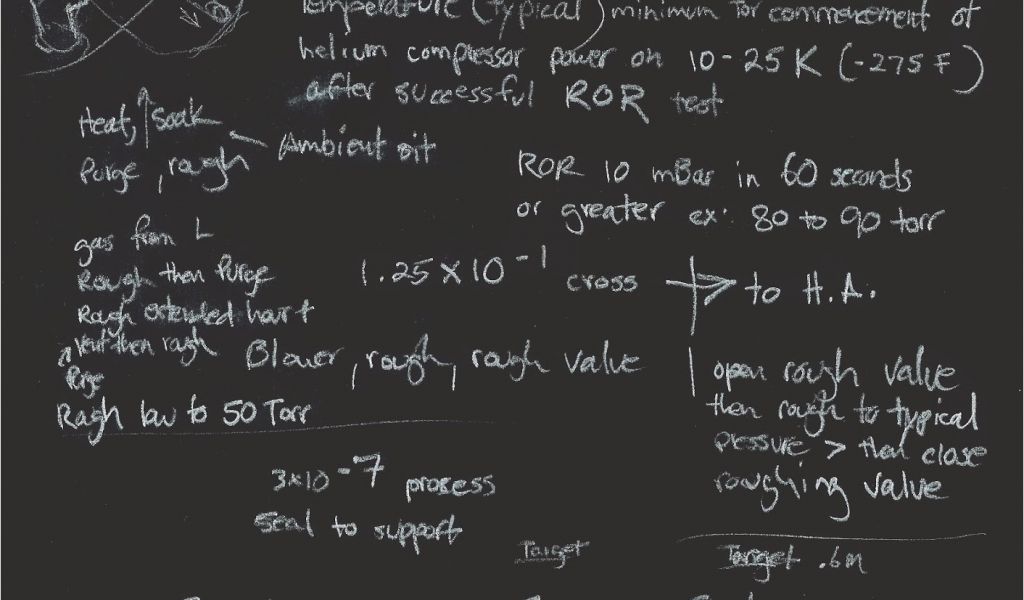 Temperature (typical) minimum for commencement of
helium compressor power on 10-25 K (-275 F)
after successful ROR test
Heat, Soak
Purge, rough
Ambient
ROR 10 mBar in 60 seconds
or greater ex: 80 to 90 torr
gas from L
Rough then Purge
Rough extended
Vent then rough
Purge
Rough low to 50 Torr
1.25 x 10 -1 cross → to H.A.
Blower, rough, rough valve
open rough valve
then rough to typical
pressure > then close
roughing valve
3x10 -7 process
seal to support
Target
Target .6m